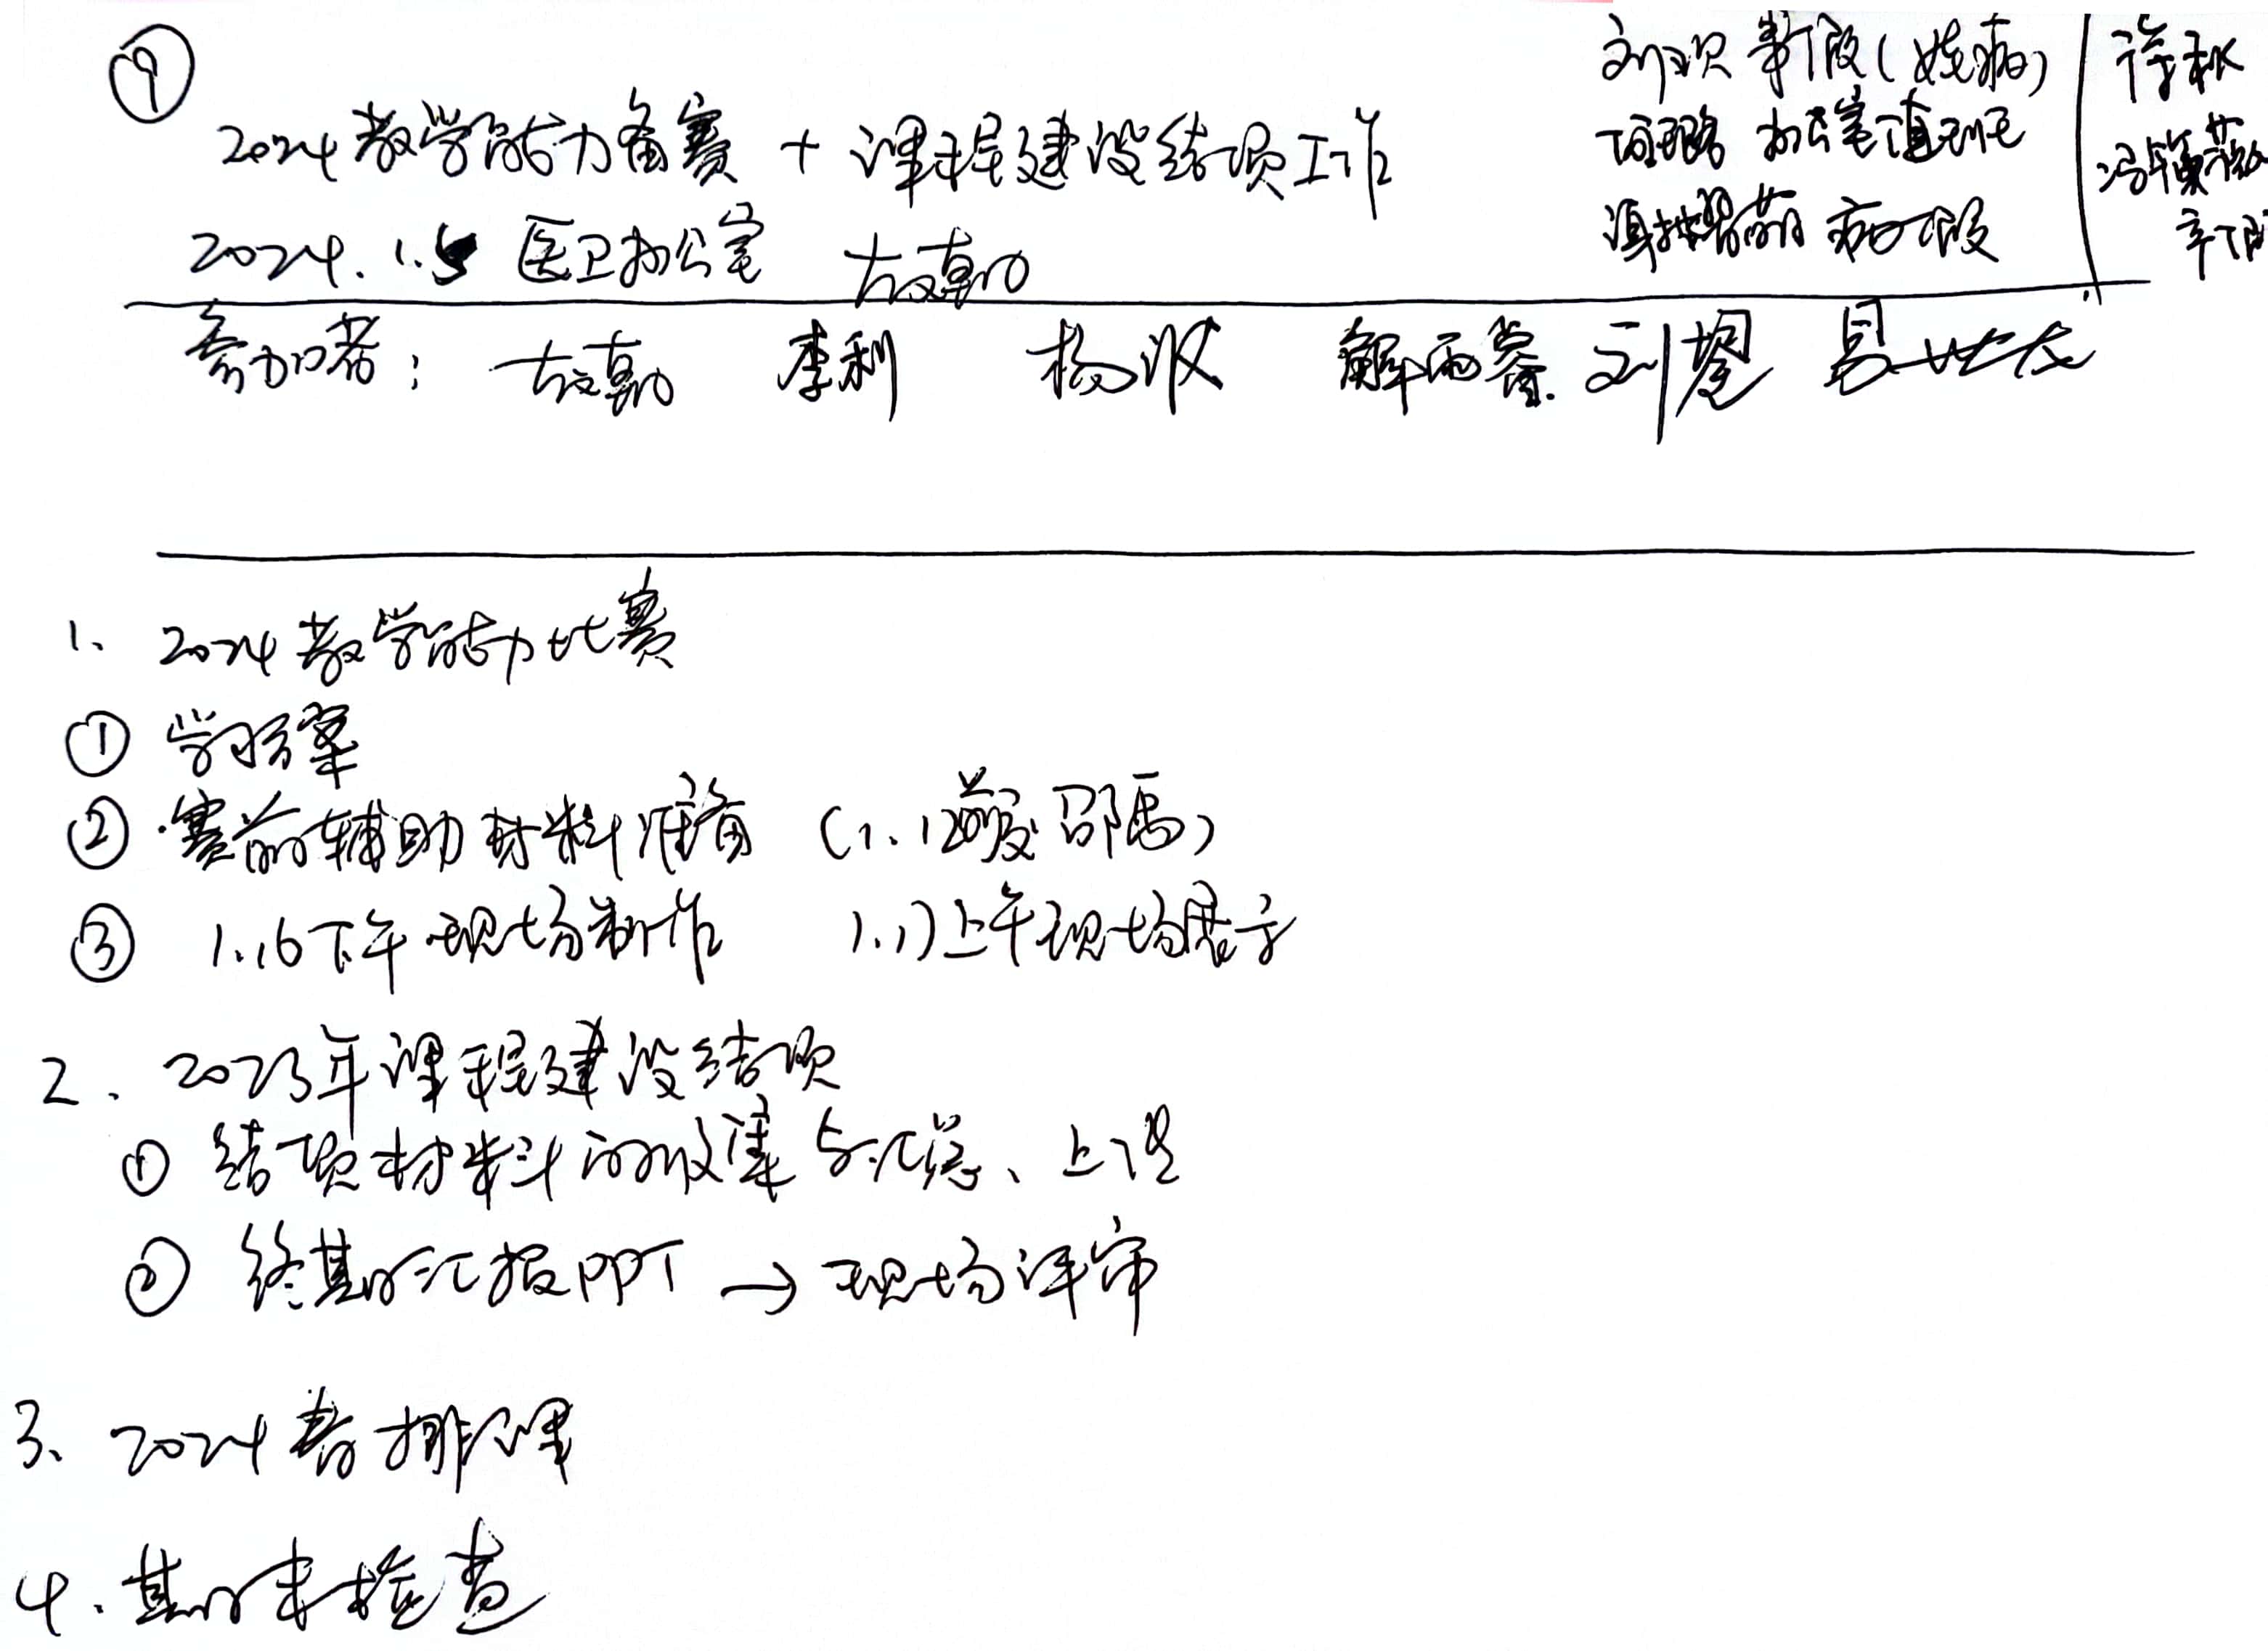 ⑨
2024教学能力备赛 + 课程建设结项工作
2024.1.5 医卫办公室
刘 事假(娃病)
办公室值班
病假
许秋
冯
参加者: 李利 杨 解雨 刘 易
1、2024教学能力比赛
① 学习方案
② 赛前辅助材料准备 (1.12前发邵禹)
③ 1.16下午现场制作 1.17上午现场展示
2、2023年课程建设结项
① 结项材料的收集与汇总、上传
② 终期汇报PPT → 现场评审
3、2024春排课
4、期末检查